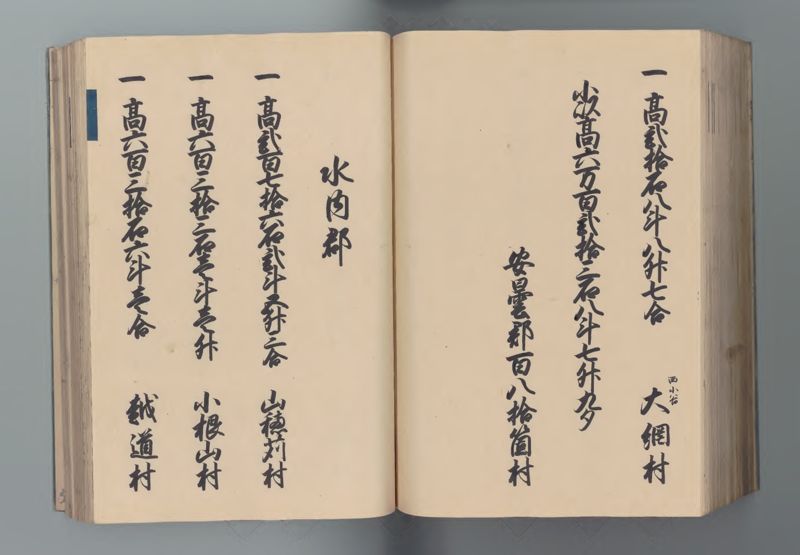 一高弐拾石八斗八升七合 西小谷 大網村
小以高六万百弐拾三石八斗七升九夕
安曇郡百八拾箇村
水内郡
一高弐百七拾六石弐斗五升三合 山穂苅村
一高六百三拾三石壱斗壱升 小根山村
一高六百三拾石六斗壱合 越道村